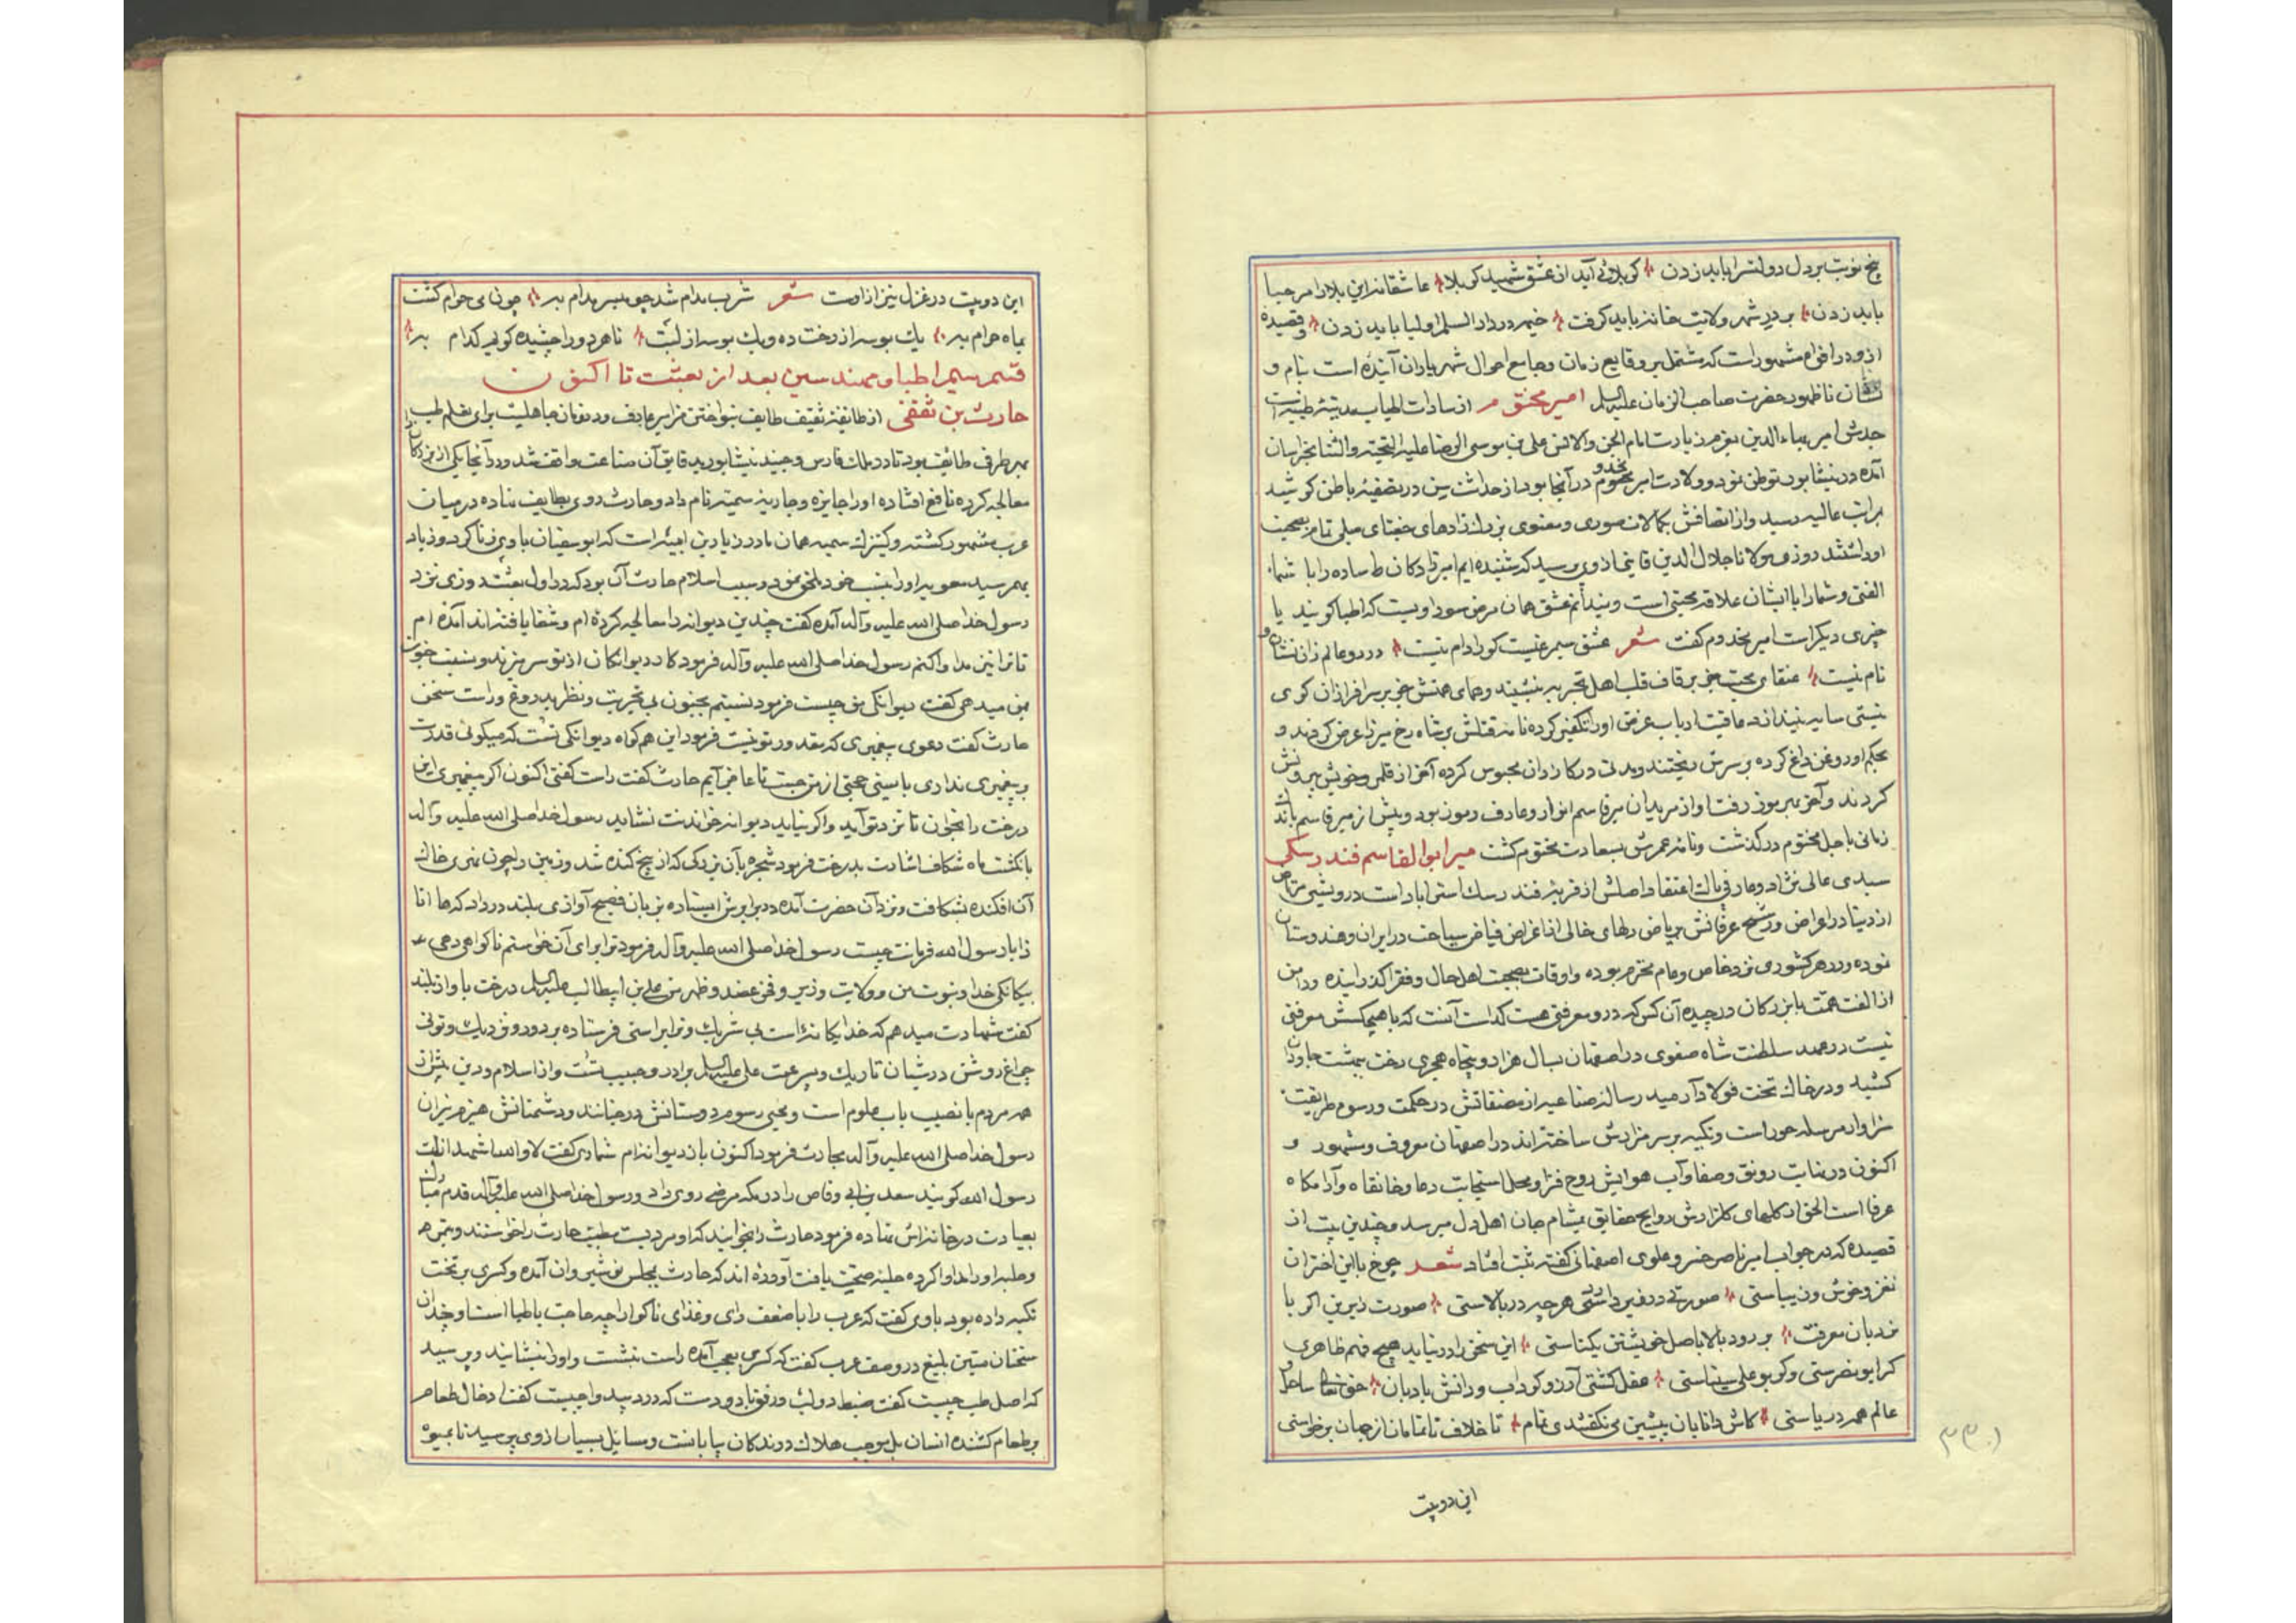 پنج نوبت بر دل دولتسرا باید زدن کربلائی آید از عشق شهید کربلا عاشقانه این بلا را مرحبا
باید زدن بر در شهر ولایت خانه باید گرفت خیمه در دار السلم اولیا باید زدن و قصیدهٔ
از و در افواه مشهور است که مشتمل بر وقایع زمان و جامع احوال شهریاران آینده است بنام و
نشان تا ظهور حضرت صاحب الزمان علیه السلم امیر مختوم از سادات مدینه طیبه است
جدش امیر بهاء الدین بعزم زیارت امام الجن والانس علی بن موسی الرضا علیه التحیته والثنا بخراسان
آمده در نیشابور توطن نمود و ولادت امیر مختوم در آنجا بود از حداثت سن در تصفیهٔ باطن کوشید
بمراتب عالیه رسید و از اتصافش بکمالات صوری و معنوی بزرك زادهای جغتای میلی تمام بصحبت
او داشتند روزی مولانا جلال الدین قاینی از وی پرسید که شنیده ایم امیرزادکان ساده را با شما
الفتی و شما را با ایشان علاقهٔ محبتی است و نیدانم عشق همان مرض سوداویست که اطبا کویند یا
چیزی دیکر است امیر مخدوم کفت شعر عشق سیمرغیست کورا دام نیست در دو عالم زان نشان و
نام نیست عنقای محبت جز بر قاف قلب اهل تجربه ننشیند و همای همتش جز بر سر افرازان کوی
نیستی سایه نیندازد عاقبت ارباب غرض اورا تکفیر کرده نامهٔ قتلش بر شاه رخ میرزا عرض کردند و
بحکم او روغن داغ کرده بر سرش ریختند و مدتی در کازران محبوس کرده آخر از قلمرو خویش بیرونش
کردند و آخر بهرموز رفت او از مریدان میر قاسم انوار و عارف رموز بود و پیش از میر قاسم باندك
زمانی باجل محتوم درکذشت و نامهٔ عمرش بسعادت مختوم کشت میر ابو القاسم فندرسکی
سیدی عالی نژاد و عارفی پاك اعتقاد اصلش از قریهٔ فندرسك استراباد است درویشی مرتاض
از دنیا در اعراض و رشح عرفانش بریاض دلهای خالی از اغراض فیاض سیاحت در ایران و هندوستان
نموده و در هر کشوری نزد خاص و عام محترم بوده و اوقات بصحبت اهل حال و فقرا کذرانیده و دامن
از الفت همت با بزرکان درچیده آن کس که درو معرفتی هست کدامست آنست که با هیچکسش معرفتی
نیست در عهد سلطنت شاه صفوی در اصفهان بسال هزار و پنجاه هجری رخت ببهشت جاودان
کشید و در خاك تخت فولاد آرمید رساله صناعیه از مصنفاتش در حکمت و رسوم طریقت
سزاوار مرسله حور است و تکیه بر سر مزارش ساخته اند در اصفهان معروف و مشهور و
اکنون در نهایت رونق و صفا و آب هوایش روح فزا و محل استجابت دعا و خانقاه و آرامکاه
عرفا است الحق از کلهای کلزارش روایح حقایق بمشام جان اهل دل میرسد و چندین بیت از
قصیده که در جواب امیر ناصر خسرو علوی اصفهانی کفته ثبت افتاد شعر چرخ با این اختران
نغز و خوش و زیباستی صورتی در زیر دارد هرچه در بالاستی صورت زیرین اکر با
نردبان معرفت بر رود بالا با اصل خویشتن یکتاستی این سخن را در نیابد هیچ فهم ظاهری
کر ابو نصرستی وکر بو علی سیناستی عقل کشتی آرزو کرداب و دانش بادبان حق تعالی ساحل و
عالم همه دریاستی کاش دانایان پیشین می نکفتندی تمام تا خلاف ناتمامان از جهان برخواستی
این دو بیت
این دو بیت در غزل نیز از اوست شعر شربت مدام شد چو میسر مدام به چون می حرام کشت
بماه حرام به یك بوسه از رخت ده ویك بوسه از لبت تا هر دو را چشیده کویم کدام به
قسم سیم اطبا و مهندسین بعد از بعثت تا اکنون
حارث بن ثقفی از طایفهٔ ثقیف طایف بنواختن مزامیر عارف و در زمان جاهلیت برای تعلم طب
بهر طرف طائف بود تا در ملك فارس و جندیشابور بدقایق آن صناعت واقف شد و در آنجا یکی از بزرکان را
معالجه کرده نافع افتاده اورا جایزه و جاریهٔ سمیه نام داد و حارث روی بطایف نهاده در میان
عرب مشهور کشته و کنیزك سمیه همان مادر زیاد بن ابیه است که ابو سفیان با وی زنا کرد و زیاد
بهم رسید معویه اورا بنسب خود ملحق نمود و سبب اسلام حارث آن بود که در اول بعثت روزی نزد
رسول خدا صلی الله علیه وآله آمده کفت چندین دیوانه را معالجه کرده ام و شفا یافته اند آمده ام
تا ترا نیز مداوا کنم رسول خدا صلی الله علیه وآله فرمود کار دیوانکان از تو سر میزند و نسبت جنون
بمن میدهی کفت دیوانکی من چیست فرمود نسبتم بجنون بی تجربت و نظر بدروغ و راست سخن
حارث کفت دعوی پیغمبری که مقدور تو نیست فرمود این هم کواه دیوانکی تست که میکوئی قدرت
بر پیغمبری نداری بایستی حجتی از من جست تا عاجز آیم حارث کفت راست کفتی اکنون اکر پیغمبری این
درخت را بخوان تا نزد تو آید واکر نیاید دیوانه خواندنت نشاید رسول خدا صلی الله علیه وآله
بانکشت ماه شکاف اشارت بدرخت فرمود شجره بآن بزرکی که از بیخ کنده شد و زمین را چون نهری خاك
آن افکنده بشکافت و نزد آن حضرت آمده در برابرش ایستاده بزبان فصیح آوازی بلند در داد که ها انا
ذا یا رسول الله فرمانت چیست رسول خدا صلی الله علیه وآله فرمود ترا برای آن خواستم تا کواهی دهی
بیکانکی خدا و نبوت من و ولایت و زیر و فخر عضد و ظهر من علی بن ابیطالب علیه السلم درخت باواز بلند
کفت شهادت میدهم که خدا یکانه است بی شریك و ترا براستی فرستاده بر دور و نزدیك و توئی
چراغ روشن در شبان تاریك و پسر عمت علی علیه السلم برادر و حبیب تست و از اسلام و دین
همه مردم با نصیب باب علوم است و محیی رسوم دوستانش در جنانند و دشمنانش هیزم نیران
رسول خدا صلی الله علیه وآله بحارث فرمود اکنون باز دیوانه ام شماری کفت لا والله اشهد انك
رسول الله کویند سعد بن ابی وقاص را در مکه مرضی روی داد و رسول خدا صلی الله علیه وآله قدم مبارك
بعیادت در خانه اش نهاده فرمود حارث را بخوانید که او مردیست طبیب حارث را خواستند
اورا مداوا کرده صحت یافت آورده اند که حارث بمجلس نوشیروان آمده و کسری بر تخت
تکیه داده بود باوی کفت که عرب را با ضعف رای و غذای ناکوار چه حاجت باطبا است او چندان
سخنان متین بلیغ در وصف عرب کفت که کسری بعجب آمده راست بنشست و اورا بنشانید و پرسید
که اصل طب چیست کفت ضبط دو لب و رفق با دو دست که درد بید وا چیست کفت ادخال طعام
بر طعام کشنده انسان بل موجب هلاك درندکان بیابانست و مسایل بسیار از وی پرسید تا بمیوه